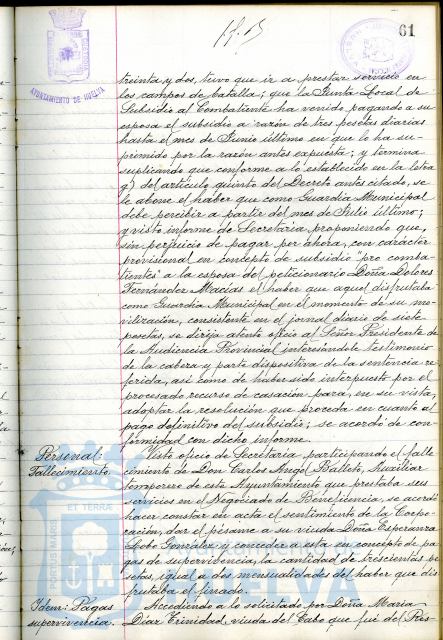 61
AYUNTAMIENTO DE HUELVA
treinta y dos, tuvo que ir a prestar servicio en
los campos de batalla; que la Junta Local de
Subsidio al Combatiente ha venido pagando a su
esposa el subsidio a razón de tres pesetas diarias
hasta el mes de Junio último en que lo ha su-
primido por la razón antes expuesta; y termina
suplicando que conforme a lo establecido en la letra
g) del artículo quinto del Decreto antes citado, se
le abone el haber que como Guardia Municipal
debe percibir a partir del mes de Julio último;
y visto informe de Secretaría proponiendo que,
sin perjuicio de pagar por ahora, con carácter
provisional en concepto de subsidio "pro comba-
tientes" a la esposa del peticionario Doña Dolores
Fernández Macías el haber que aquel disfrutaba
como Guardia Municipal en el momento de su mo-
vilización, consistente en el jornal diario de siete
pesetas, se dirija atento oficio al Señor Presidente de
la Audiencia Provincial interesándole testimonio
de la cabeza y parte dispositiva de la sentencia re-
ferida, así como de haber sido interpuesto por el
procesado recurso de casación para, en su vista,
adoptar la resolución que proceda en cuanto al
pago definitivo del subsidio; se acordó de con-
formidad con dicho informe.
Personal:
Fallecimiento.
Visto oficio de Secretaría participando el falle-
cimiento de Don Carlos Angel Balleto, Auxiliar
temporero de este Ayuntamiento que prestaba sus
servicios en el Negociado de Beneficencia, se acordó
hacer constar en acta el sentimiento de la Corpo-
ración, dar el pésame a su viuda Doña Esperanza
Lobo González y conceder a esta en concepto de pa-
gas de supervivencia, la cantidad de trescientas pe-
setas, igual a dos mensualidades del haber que dis-
frutaba el finado.
Idem: Pagas
supervivencia.
Accediendo a lo solicitado por Doña María
Díaz Trinidad, viuda del Cabo que fué del Res-